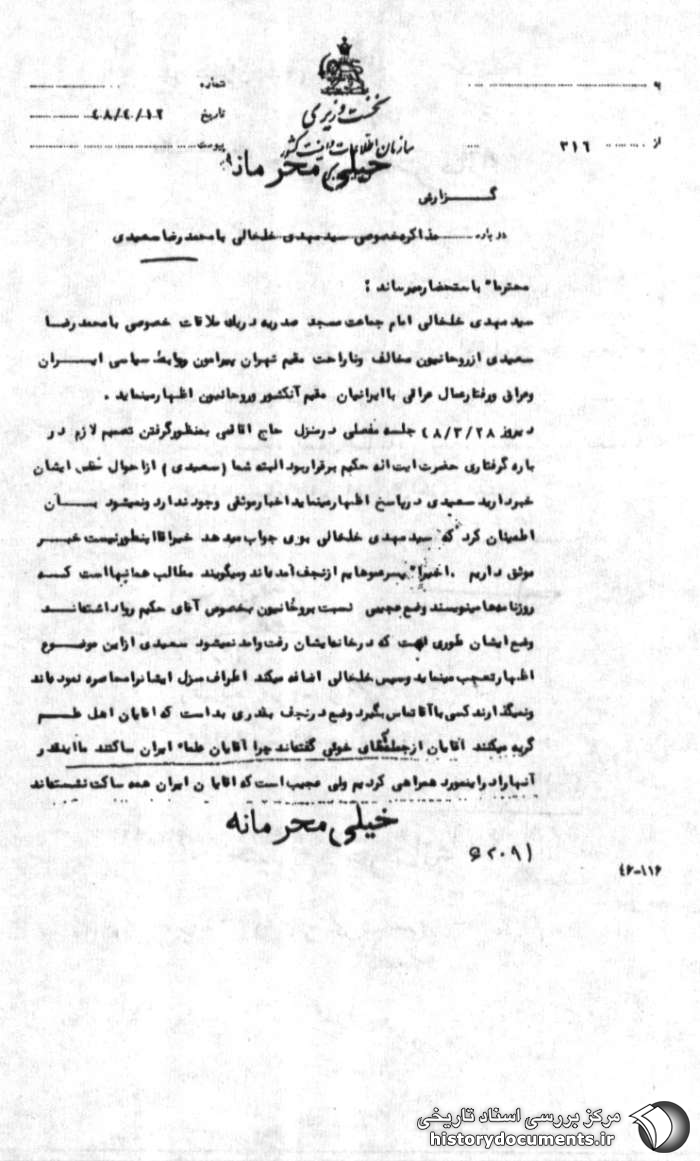 نخست وزیری
سازمان اطلاعات و امنیت کشور
خیلی محرمانه
به
از ۳۱۶
شماره
تاریخ ۴۸/۴/۱۲
پیوست
گزارش
درباره مذاکره خصوصی سید مهدی خلخالی با محمد رضا سعیدی
محترماً باستحضار میرساند :
سید مهدی خلخالی امام جماعت مسجد صدریه در یک ملاقات خصوصی با محمد رضا
سعیدی از روحانیون مخالف و ناراحت مقیم تهران پیرامون روابط سیاسی ایران
و عراق و رفتار عمال عراقی با ایرانیان مقیم آنکشور و روحانیون اظهار مینماید .
دیروز ۴۸/۳/۲۸ جلسه مفصلی در منزل حاج آقا بمنظور گرفتن تصمیم لازم در
باره گرفتاری حضرت ایت اله حکیم برقرار بود البته شما (سعیدی) از احوال ایشان
خبر دارید سعیدی در پاسخ اظهار مینماید اخبار موثقی وجود ندارد و نمیشود بان
اطمینان کرد که سید مهدی خلخالی بوی جواب میدهد خیر اقا اینطور نیست خبر
موثق داریم . اخیراً پسر عموهایم از نجف آمده‌اند و میگویند مطالب همانهااست که
روزنامه‌ها مینویسند وضع عجیبی نسبت بروحانیون بخصوص آقای حکیم روا داشته‌اند
وضع ایشان طوری است که در خانه‌ایشان رفت و امد نمیشود سعیدی از این موضوع
اظهار تعجب مینماید و سپس خلخالی اضافه میکند اطراف منزل ایشان را محاصره نموده‌اند
و نمیگذارند کسی با آقا تماس بگیرد وضع در نجف بقدری بد است که اقایان اهل علم
گریه میکنند اقایان از جمله آقای خوئی گفته‌اند چرا آقایان علماء ایران ساکتند ما اینقدر
آنها را در اینمورد همراهی کردیم ولی عجیب است که اقایان ایران همه ساکت نشسته‌اند
خیلی محرمانه
۴۶-۱۱۶
مرکز بررسی اسناد تاریخی
historydocuments.ir